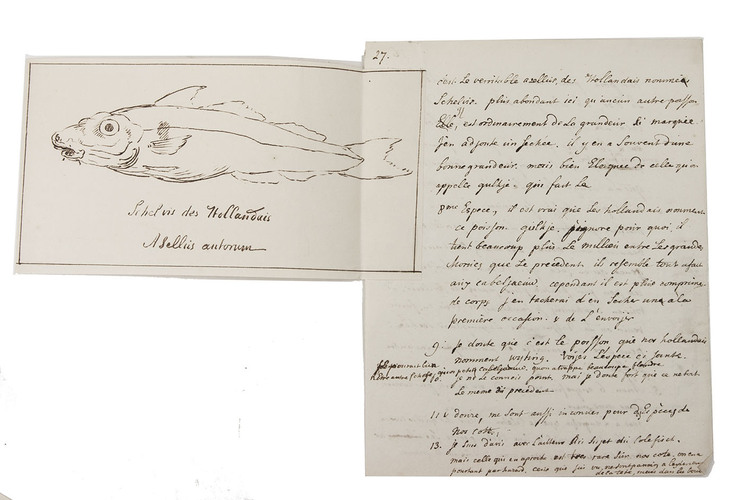 Schelvis des Hollandais
Asellus antorum
27.
c'est Le veritable asellus, des Hollandais nommée
Schelvis. plus abondant ici qu'aucun autre poisson
Elle, est ordinairement de La grandeur ci marquée
j'en adjoute un sechée. il y en a Souvent d'une
bonne grandeur. mais bien Eloignée de celle qu'on
appelle gulhje. qui fait Le
8me Espece, il est vrai que Les hollandais nomment
ce poisson gulhje. j'ignore pour quoi. il
tient beaucoup plus Le millieu entre Les grandes
que Le precedent. il resemble tout a fait
aux cabeljaeuw, cependant il est plus comprimé
de corps j'en tacherai d'en Secher une a la
première occasion. & de L'envoijer
9. je doute que c'est Le poisson que nos hollandais
nomment wijting. voijés L'éspece ci jointe.
10. je ne Le connois point, mai je doute fort que ce ne soit
Le même du précédent
11 & douze, me Sont aussi inconnues pour des Espèces de
Nos cotes,
13. je Suis d'avis avec L'autheur au Sujet du
mais celle qui en aproche est tres rare Sur nos cote, on en a
pourtant par hazard, ceux que j'ai vu,
de La cote, mais dans les